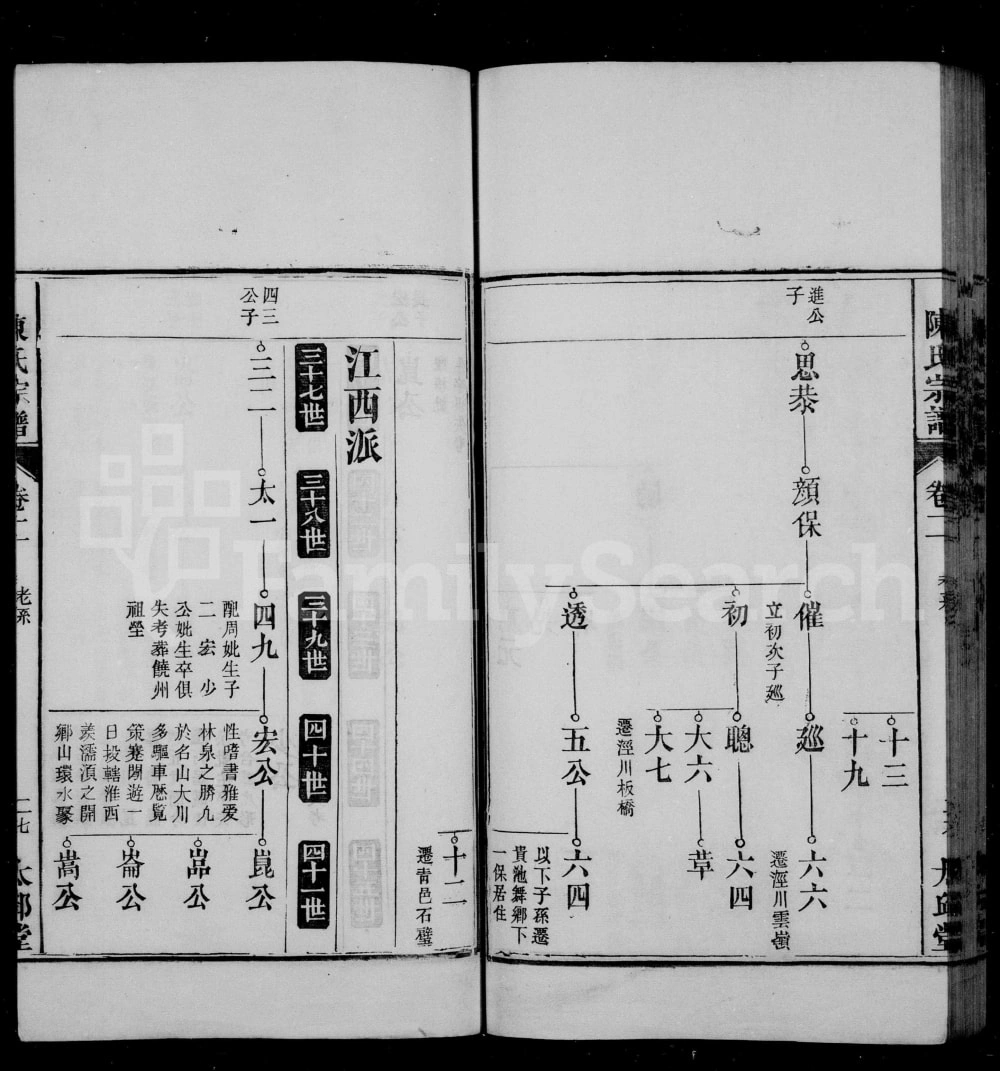 陳氏宗譜
卷二
進公子
思恭
顔保
十三
十九
催
立初次子廵
廵
六六
遷涇川雲嶺
初
聰
六四
大六
草
大七
遷涇川板橋
透
五公
六四
以下子孫遷
貴池舞鄉下
一保居住
十二
遷青邑石壁
江西派
三十七世
三十八世
三十九世
四十世
四十一世
四三公子
三二
太一
四九
配周妣生子
二宏少
公妣生卒俱
失考葬饒州
祖塋
宏公
性嗜書雅愛
林泉之勝九
於名山大川
多驅車歷覧
策蹇閒遊一
日投轄淮西
羨濡湏之開
鄉山環水聚
崑公
喦公
崙公
嵩公
陳氏宗譜
卷二
老孫
二七
FamilySearch